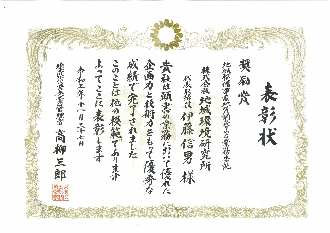 表彰状
奨励賞
株式会社 地域環境研究所
代表取締役 伊藤信男 様
貴社は頭書の業務において優れた
企画力と技術力をもって優秀な
成績で完了されました
このことは他の模範であります
よってここに表彰します
令和三年十一月二十七日
高柳三郎